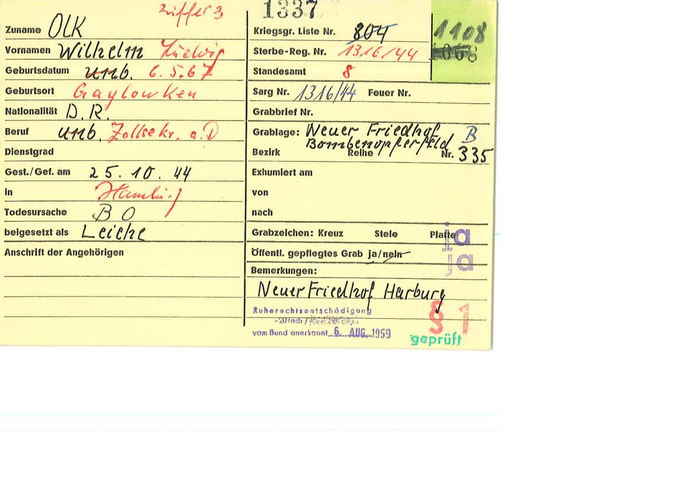 Ziffer 3
1337
Zuname OLK
Kriegsgr. Liste Nr. 804
1108
Vornamen Wilhelm Ludwig
Sterbe-Reg. Nr. 1316/44
Geburtsdatum unb. 6.5.67
Standesamt 8
Geburtsort Gaylowken
Sarg Nr. 1316/44 Feuer Nr.
Nationalität D.R.
Grabbrief Nr.
Beruf unb. Zollsekr. a.D
Grablage: Neuer Friedhof B
Bombenopferfeld
Dienstgrad
Bezirk Reihe Nr. 335
Gest./Gef. am 25.10.44
Exhumiert am
in Hamburg
von
Todesursache BO
nach
beigesetzt als Leiche
Grabzeichen: Kreuz Stele Platte ja
Anschrift der Angehörigen
Öffentl. gepflegtes Grab ja/nein ja
Bemerkungen:
Neuer Friedhof Harburg
Ruherechtsentschädigung
vom Bund anerkannt 6. AUG. 1959
§ 1
geprüft